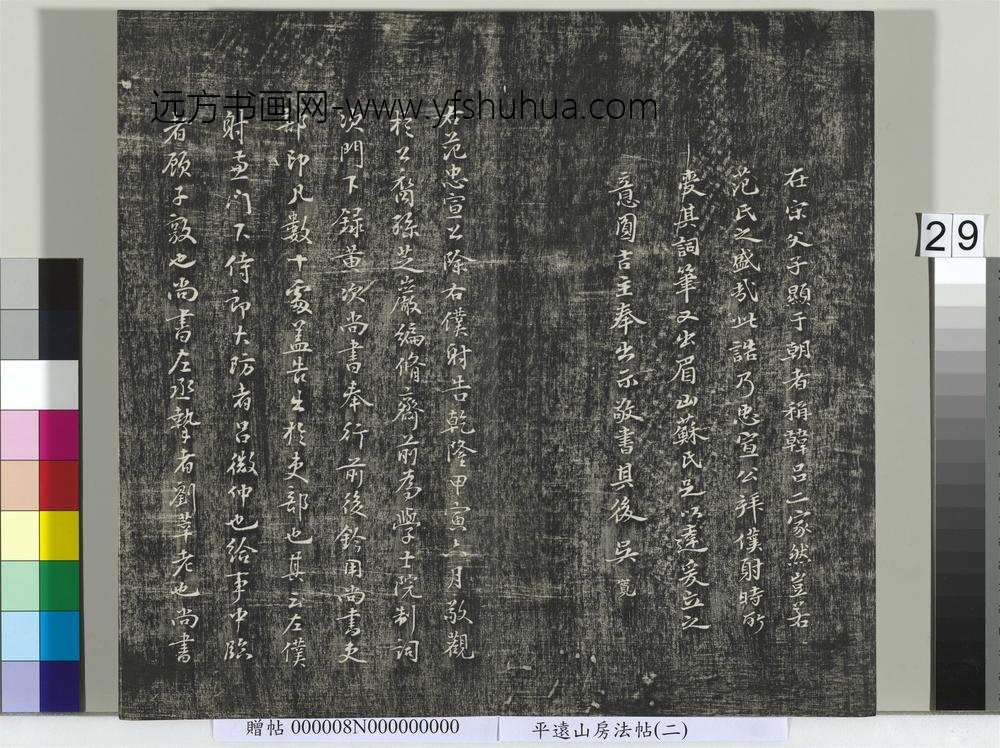 远方书画网-www.yfshuhua.com
29
在宋父子顯于朝者稱韓呂二家然豈若
范氏之盛哉此誥乃忠宣公拜僕射時所
受其詞筆又出眉山蘇氏足以遠爰立之
意圓吉主奉出示敬書其後 吳寬
右范忠宣公除右僕射告乾隆甲寅六月敬觀
於公裔孫芝巖編脩齋前為學士院制詞
次門下錄黃次尚書奉行前後鈐用尚書吏
部印凡數十處蓋告出於吏部也其云左僕
射兼門下侍郎大防者呂微仲也給事中臨
者顧子敦也尚書左丞摯者劉莘老也尚書
贈帖 000008N000000000
平遠山房法帖(二)